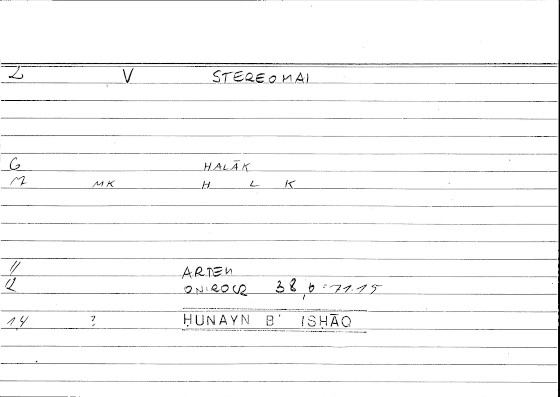 2 V STEREOMAI
6 HALĀK
M MK H L K
11 ARTEM
12 ONIROCR 38,6 = 71.15
14 ? ḤUNAYN B' ISḤĀQ